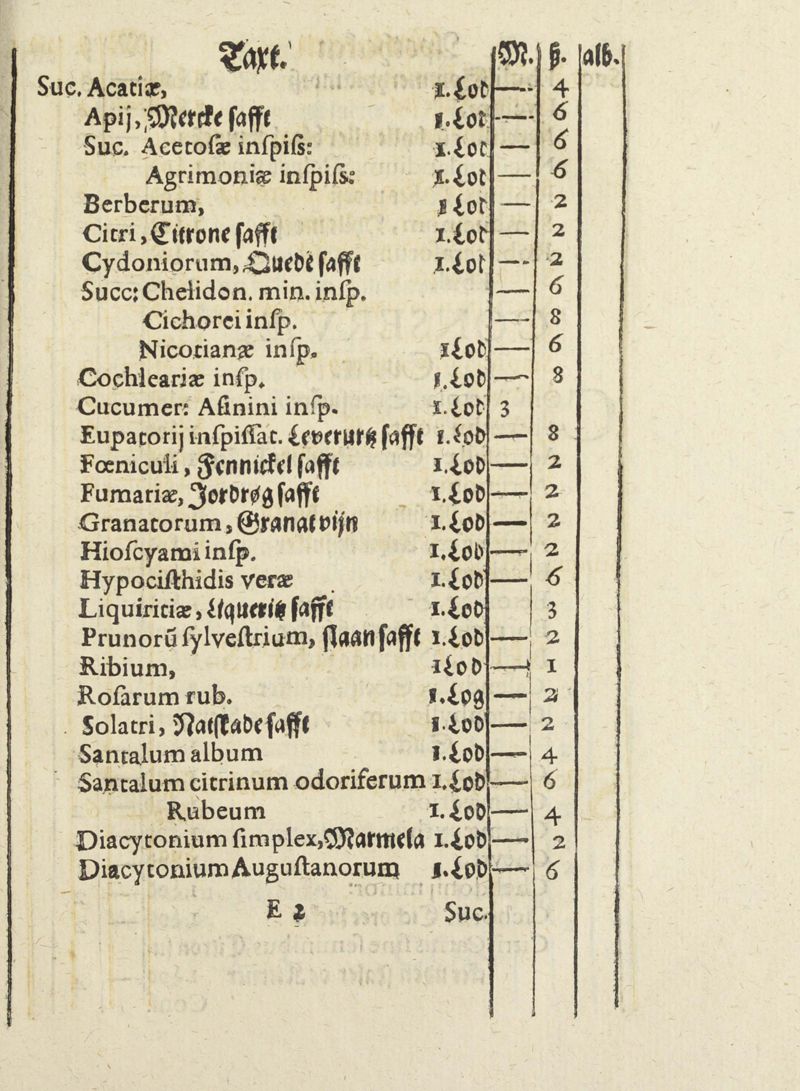 Taxt. M. ß. alb.
Suc. Acatiæ, 1. Lod — 4
Apij, Mercke safft 1. Lot — 6
Suc. Acetosæ inspiss: 1. Lot — 6
Agrimoniæ inspiss: 1. Lot — 6
Berberum, 1 Lot — 2
Citri, Citrone safft 1. Lot — 2
Cydoniorum, Quede safft 1. Lot — 2
Succ: Chelidon. min. insp. — 6
Cichorei insp. — 8
Nicotianæ insp. 1 Lod — 6
Cochleariæ insp. 1. Lod — 8
Cucumer: Asinini insp. 1. Lot 3
Eupatorij inspissat. Leverurtz safft 1. Lod — 8
Fœniculi, Fennickel safft 1. Lod — 2
Fumariæ, Jordrøg safft 1. Lod — 2
Granatorum, Granat vijn 1. Lod — 2
Hioscyami insp. 1. Lod — 2
Hypocisthidis veræ 1. Lod — 6
Liquiritiæ, liqueritz safft 1. Lod 3
Prunorū sylvestrium, slaan safft 1. Lod — 2
Ribium, 1 Lod — 1
Rosarum rub. 1. Log — 2
Solatri, Natskade safft 1. Lod — 2
Santalum album 1. Lod — 4
Santalum citrinum odoriferum 1. Lod — 6
Rubeum 1. Lod — 4
Diacytonium simplex, Marmela 1. Lod — 2
Diacytonium Augustanorum 1. Lod — 6
E 2 Suc.